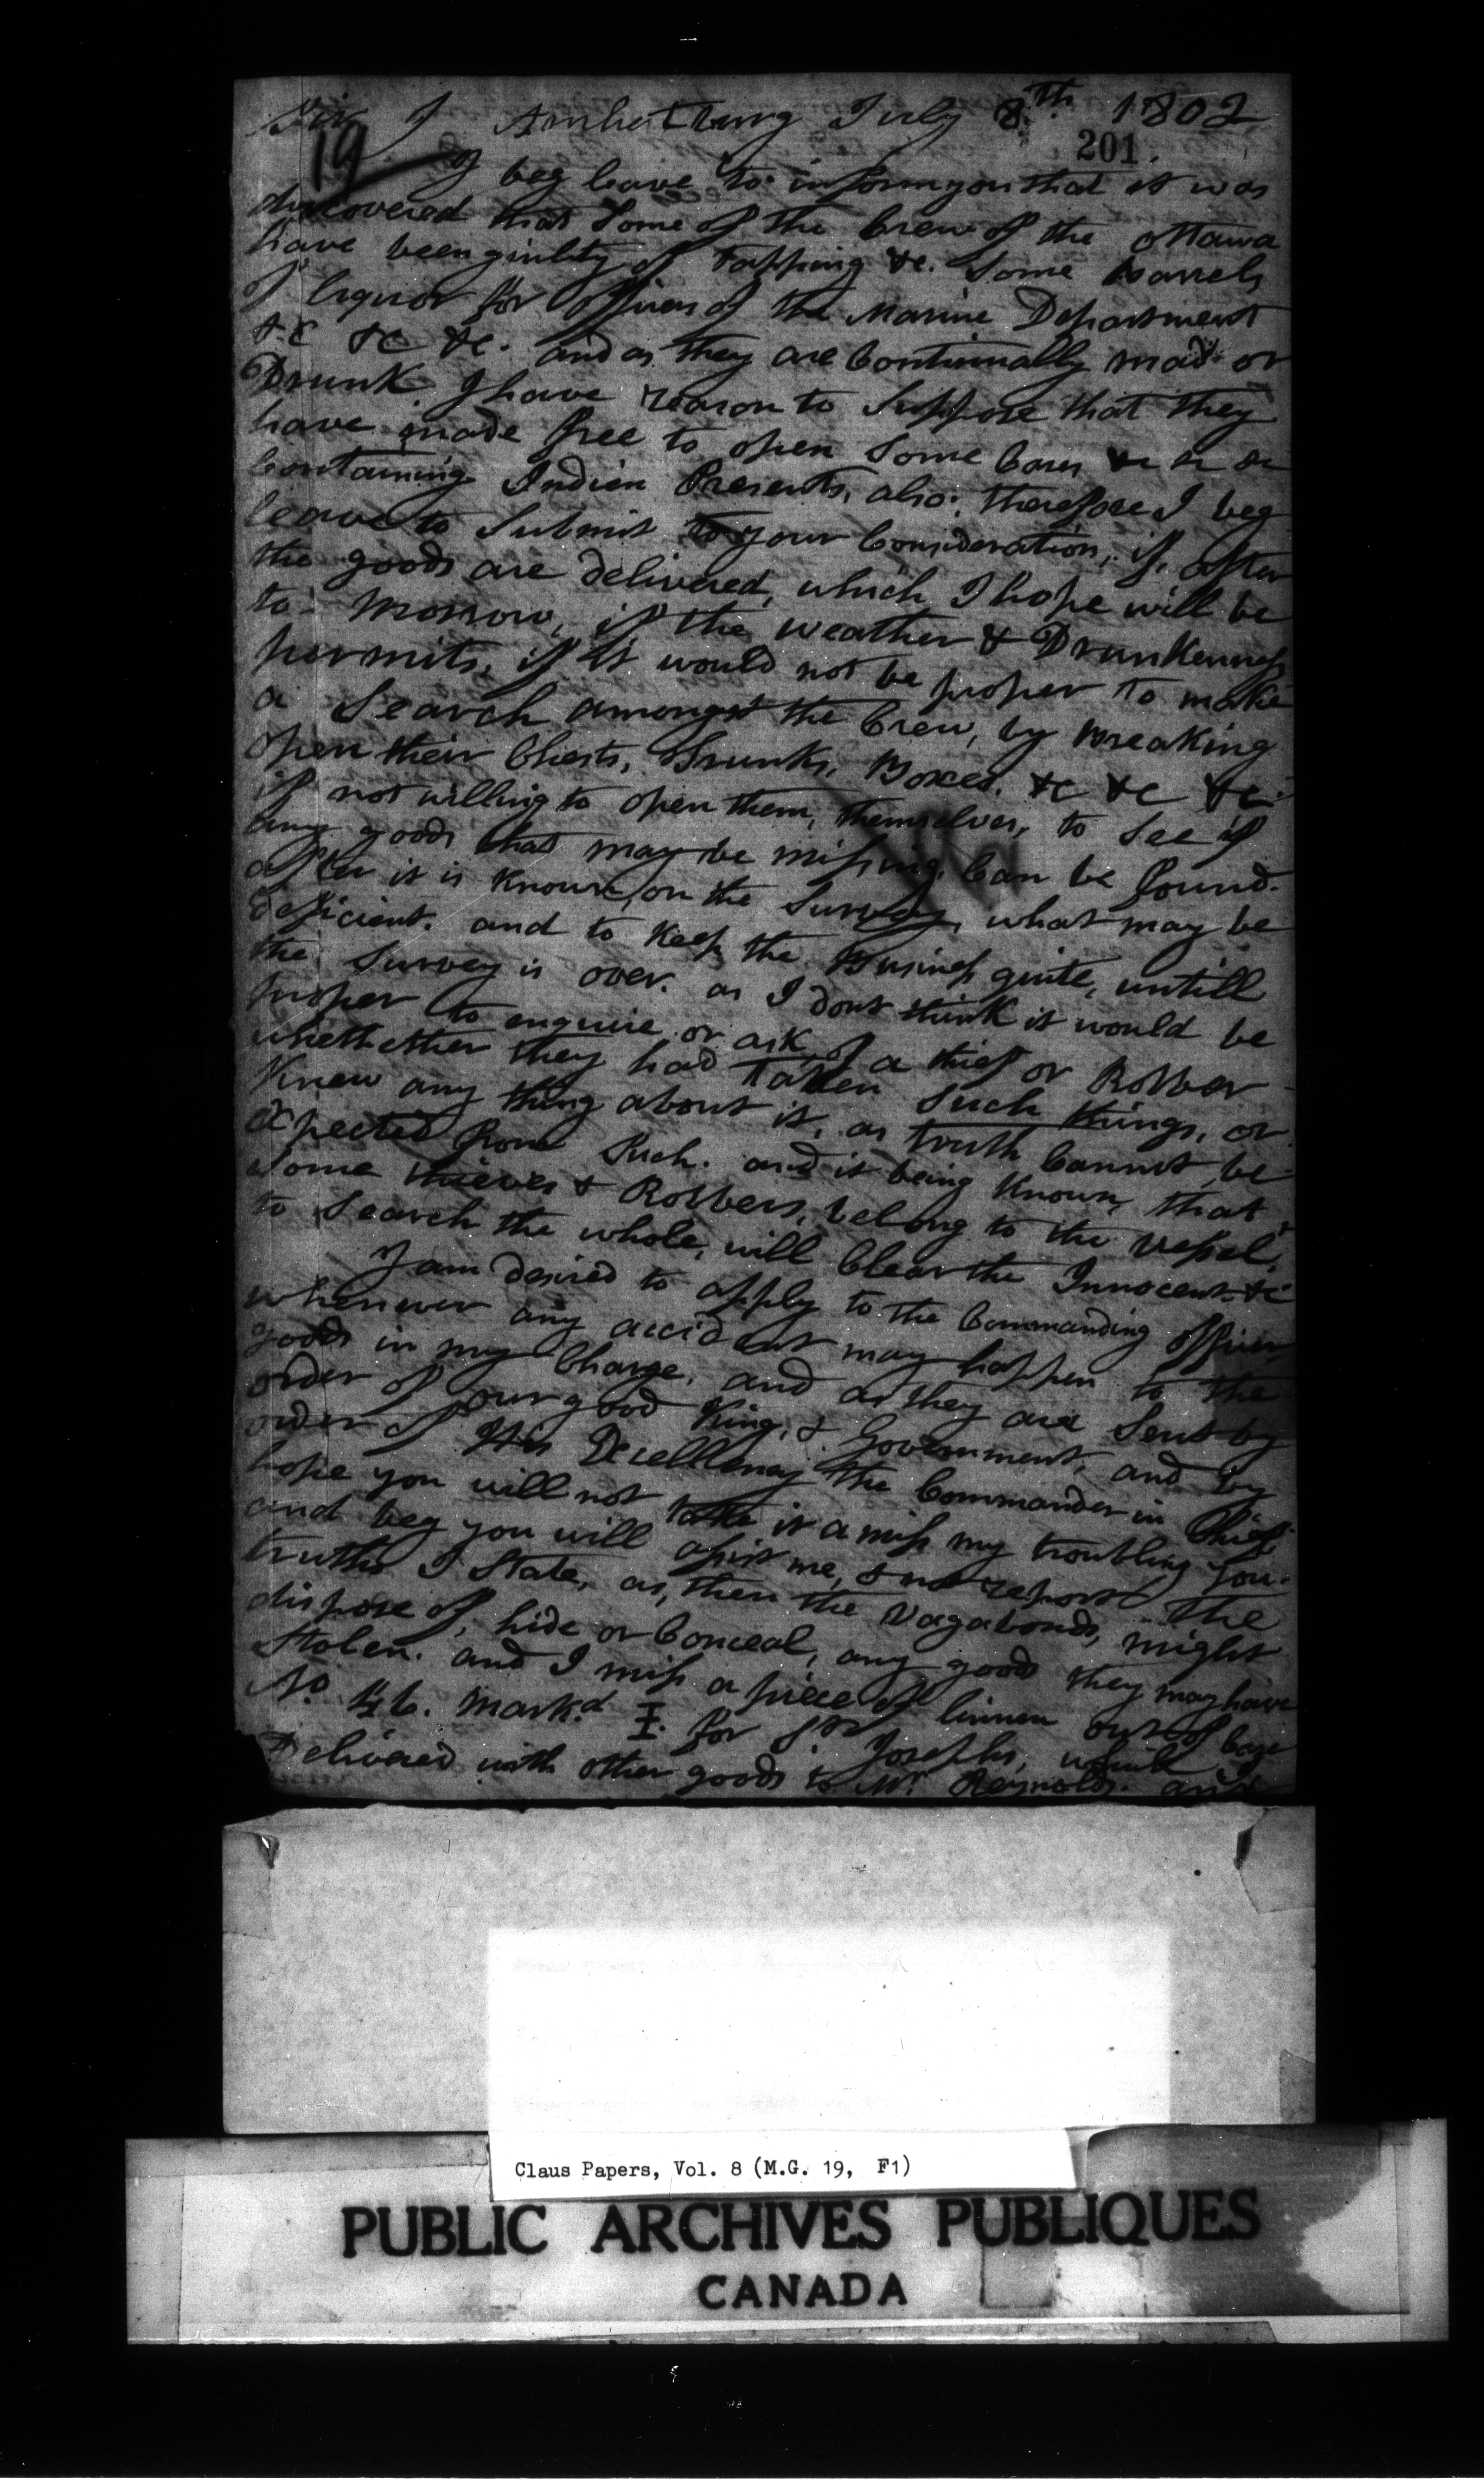 Sir Amherstburg July 8th 1802
201.
19
I beg leave to inform you that it was
discovered that Some of the Crew of the Ottawa
have been guilty of Tapping &c. Some Barrels
of liquor for Officers of the Marine Department
&c &c &c. and as they are Continually mad or
Drunk. I have reason to Suppose that they
have made free to open Some Cases &c &c &c
Containing Indien Presents, also; therefore I beg
leave to Submit to your Consideration, if, after
the goods are delivered, which I hope will be
to-morrow, if the weather & Drunkenness
permits, if it would not be proper to make
a Search amongst the Crew, by Breaking
open their Chests, Trunks, Boxes, &c &c &c
if not willing to open them, themselves, to See if
any goods that may be missing, Can be found.
after it is Known, on the Survey, what may be
deficient. and to Keep the Business quite, untill
the Survey is over. as I dont think it would be
proper to enquire or ask, of a thief or Robber
whethether they had Taken Such things, or
Knew any thing about it, as truth Cannot be
expected from Such. and it being Known, that
Some thieves & Robbers, belong to the Vessel,
to Search the whole, will Clear the Innocent. &c
I am desired to apply to the Commanding officer
whenever any accident may happen to the
goods in my Charge, and as they are Sent by
order of our good King, & Government, and by
order of His Excellency the Commander in Chief
hope you will not take it a miss my troubling you.
and beg you will assist me, & not report The
truths I State, as, then the Vagabonds, might
dispose of, hide or Conceal, any good they may have
Stolen. and I miss a piece of linnen out of bage
No. 46. markd I. for St Josephs, which I
Delivered with other goods to Mr Reynolds. and
Claus Papers, Vol. 8 (M.G. 19, F1)
PUBLIC ARCHIVES PUBLIQUES
CANADA